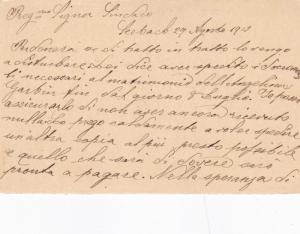 Reg.mo Signor Sindaco
29 Agosto 19
Perdonara se di tratto in tratto lo vengo
a disturbare dice aver spedito i Docum
ti necessari al matrimonio dell Angelina
Garbin fin dal giorno 8 Luglio Io posso
assicurarlo di non aver ancora ricevuto
nulla lo prego caldamente a voler spedire
un'altra copia al più presto possibile
e quello che sarà di dovere sarò
pronta a pagare. Nella speranza di